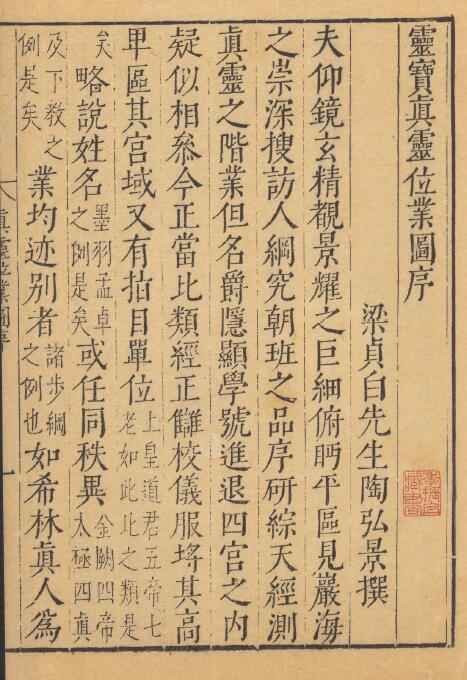 靈寶眞靈位業圖序
梁貞白先生陶弘景撰
夫仰鏡玄精覩景耀之巨細俯眄平區見巖海
之崇深搜訪人綱究朝班之品序研綜天經測
眞靈之階業但名爵隱顯學號進退四宮之内
疑似相叅今正當比類經正讎校儀服埒其高
卑區其宮域又有指目單位上皇道君五帝七老如此比之類是
矣略說姓名墨羽孟卓之例是矣或任同秩異金闕四帝太極四真
及下教之例是矣業均迹別者諸步綱之例也如希林眞人爲
眞靈位業圖序
一